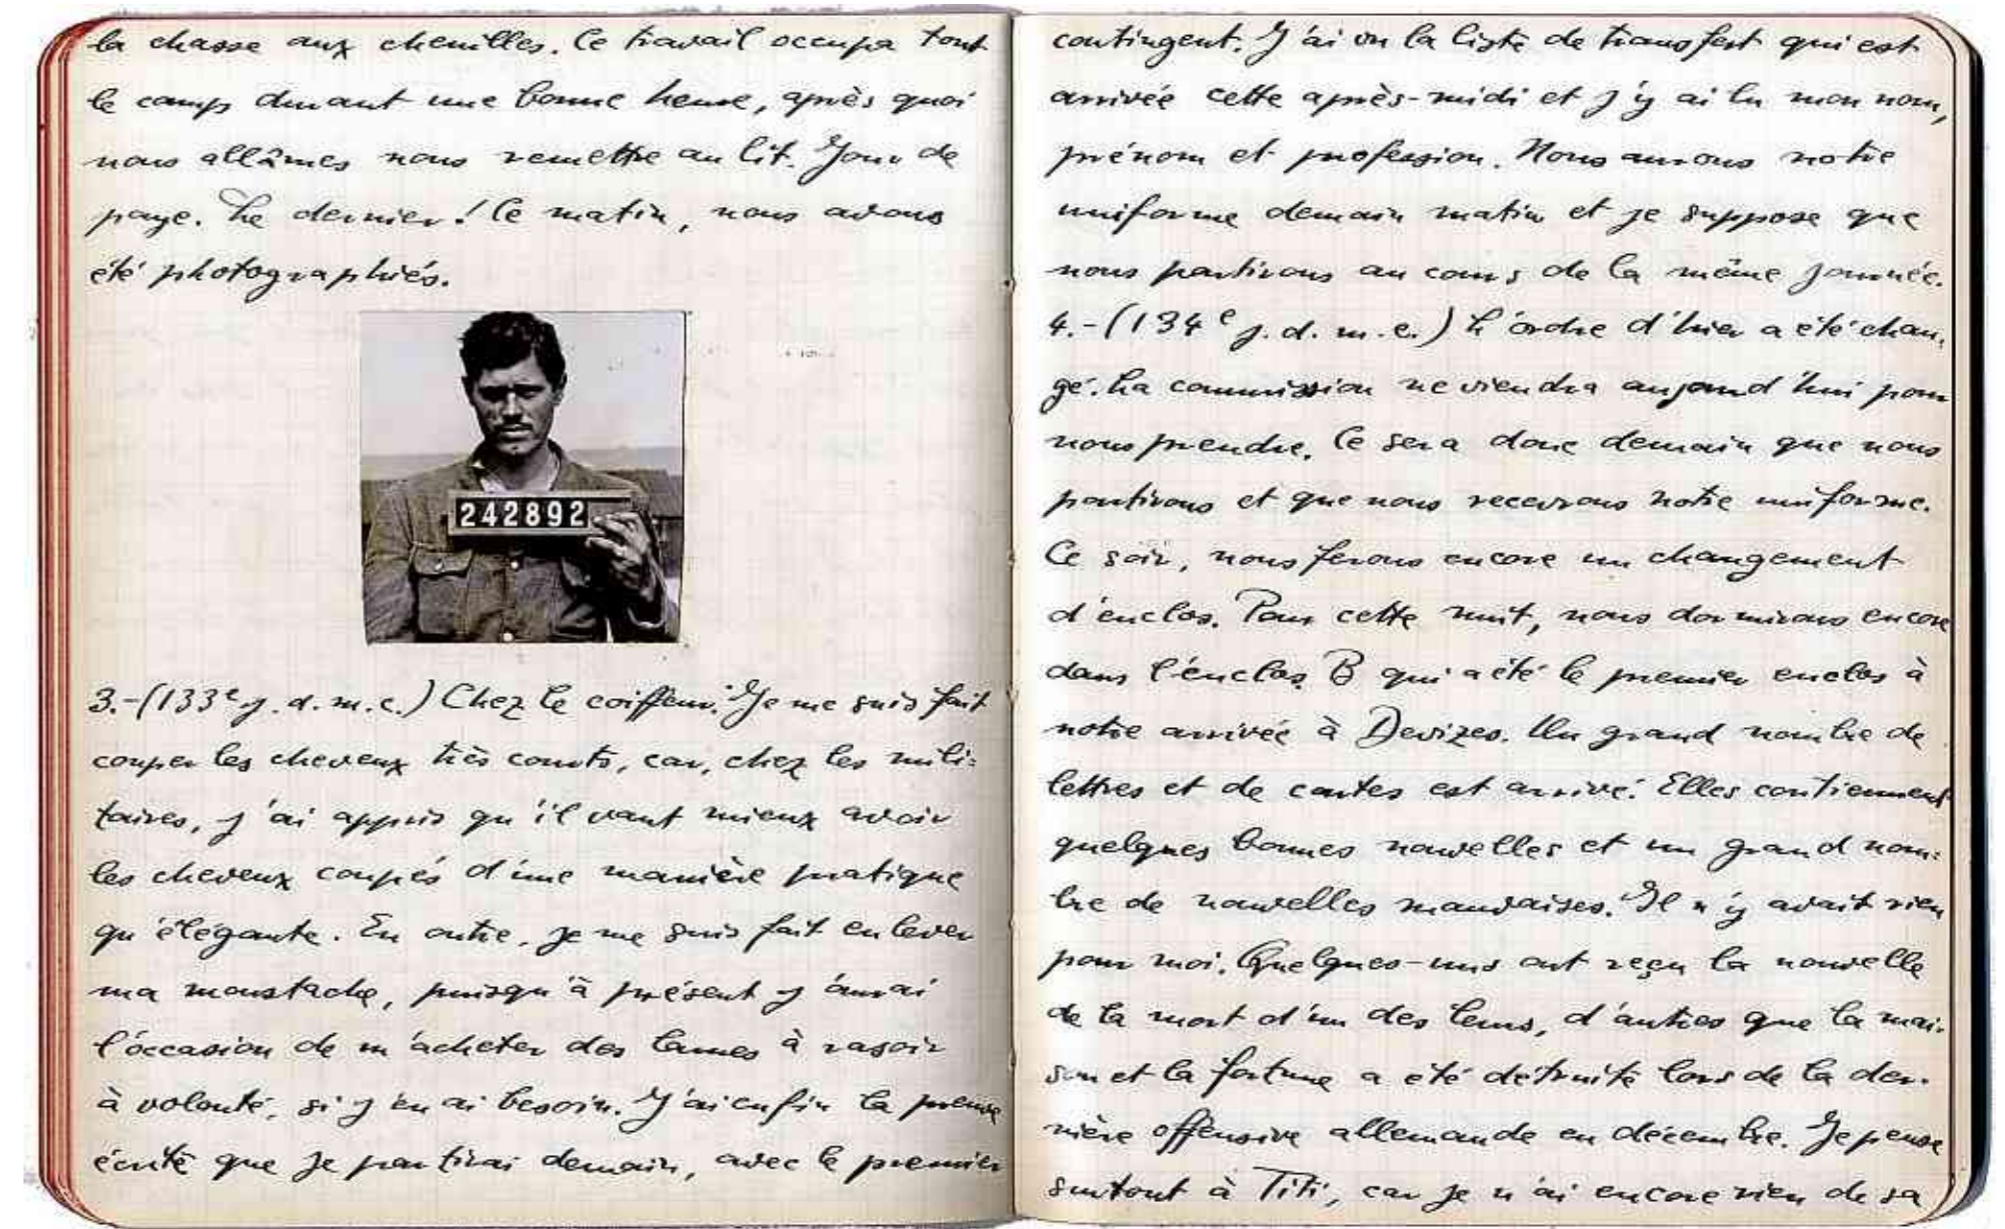 la chasse aux chenilles. Ce travail occupa tout
le camp durant une bonne heure, après quoi
nous allâmes nous remettre au lit. Jour de
paye. Le dernier! Ce matin, nous avons
été photographiés.
242892
3.-(133e j. d. m. c.) Chez le coiffeur. Je me suis fait
couper les cheveux très courts, car, chez les mili-
taires, j'ai appris qu'il vaut mieux avoir
les cheveux coupés d'une manière pratique
qu'élégante. En outre, je me suis fait enlever
ma moustache, puisqu'à présent j'aurai
l'occasion de m'acheter des lames à rasoir
à volonté, si j'en ai besoin. J'ai enfin la preuve
écrite que je partirai demain, avec le premier
contingent. J'ai vu la liste de transfert qui est
arrivée cette après-midi et j'y ai lu mon nom,
prénom et profession. Nous aurons notre
uniforme demain matin et je suppose que
nous partirons au cours de la même journée.
4.-(134e j. d. m. c.) L'ordre d'hier a été chan-
gé. La commission ne viendra aujourd'hui pour
nous prendre. Ce sera donc demain que nous
partirons et que nous recevrons notre uniforme.
Ce soir, nous ferons encore un changement
d'enclos. Pour cette nuit, nous dormirons encore
dans l'enclos B qui a été le premier enclos à
notre arrivée à Devizes. Un grand nombre de
lettres et de cartes est arrivé. Elles contiennent
quelques bonnes nouvelles et un grand nom-
bre de nouvelles mauvaises. Il n'y avait rien
pour moi. Quelques-uns ont reçu la nouvelle
de la mort d'un des leurs, d'autres que la mai-
son et la fortune a été détruite lors de la der-
nière offensive allemande en décembre. Je pense
surtout à Titi, car je n'ai encore rien de sa